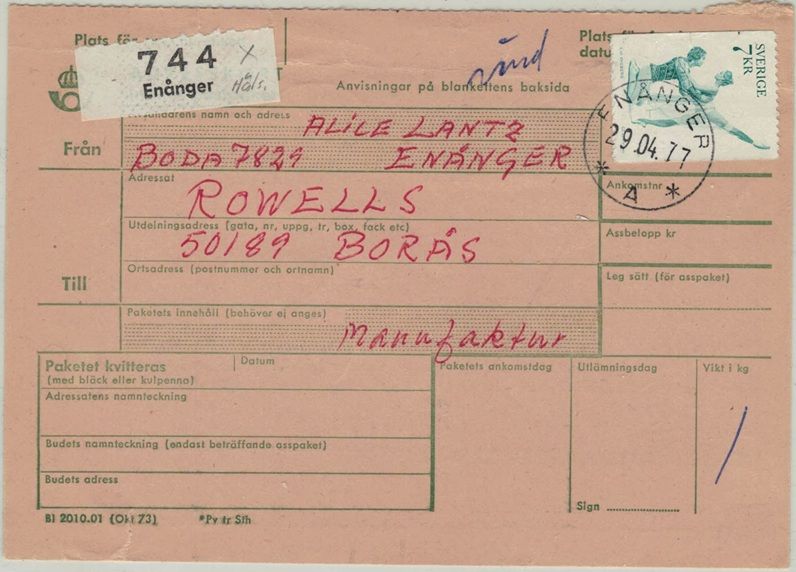 Plats för
744 X
Enånger Häls.
Anvisningar på blankettens baksida
Plats
datu
SVERIGE
7 KR
ENÅNGER
29.04.77
* A *
Från
Avsändarens namn och adress
ALICE LANTZ
BODA 7829 ENÅNGER
Adressat
ROWELLS
Utdelningsadress (gata, nr, uppg, tr, box, fack etc)
50189 BORÅS
Ortsadress (postnummer och ortnamn)
Till
Ankomstnr
Assbelopp kr
Leg sätt (för asspaket)
Paketets innehåll (behöver ej anges)
Manufaktur
Paketet kvitteras
(med bläck eller kulpenna)
Datum
Adressatens namnteckning
Budets namnteckning (endast beträffande asspaket)
Budets adress
Paketets ankomstdag
Utlämningsdag
Vikt i kg
/
Sign
Bl 2010.01 (Okt 73) *Py tr Sth